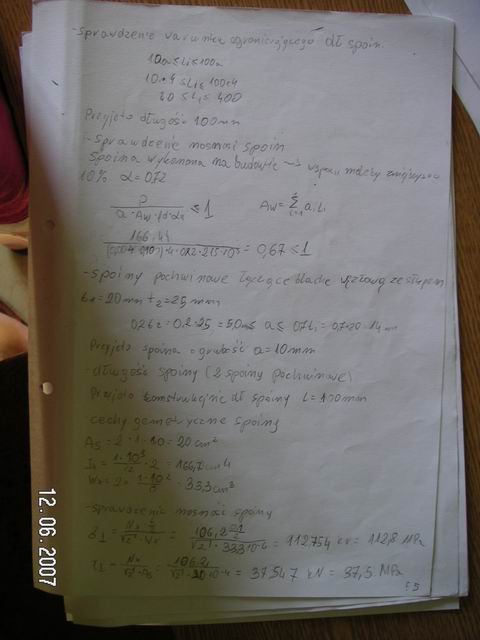 - sprawdzenie warunku ograniczającego dł spoin.
10a ≤ Li ≤ 100a
10·4 ≤ Li ≤ 100·4
40 ≤ Li ≤ 400
Przyjęto długość 100mm
- Sprawdzenie nośności spoin
Spoina wykonana na budowie → współ należy zmniejszyć
10% α=0,72
P / α·Aw·fd·α ≤ 1    Aw = Σ ai Li
166,41 / ·4·0,72·215·10³ = 0,67 ≤ 1
- spoiny pachwinowe łączące blachę węzłową ze słupem
t1=20mm t2=25mm
0,2·25 = 5,0 ≤ a ≤ 0,7t1 = 0,7·20 = 14mm
Przyjęto spoinę o grubość a=10mm
- długość spoiny (2 spoiny pachwinowe)
Przyjęto konstrukcyjnie dł spoiny L=100mm
cechy geometryczne spoiny
As = 2·1·10 = 20cm²
Ix = 1·10³/12 · 2 = 166,7cm⁴
Wx = 2· 1·10²/6 = 33,3cm³
- sprawdzenie nośność spoiny
= 112754 = 112,8 MPa
= 37,547 kN = 37,5 MPa
12.06.2007